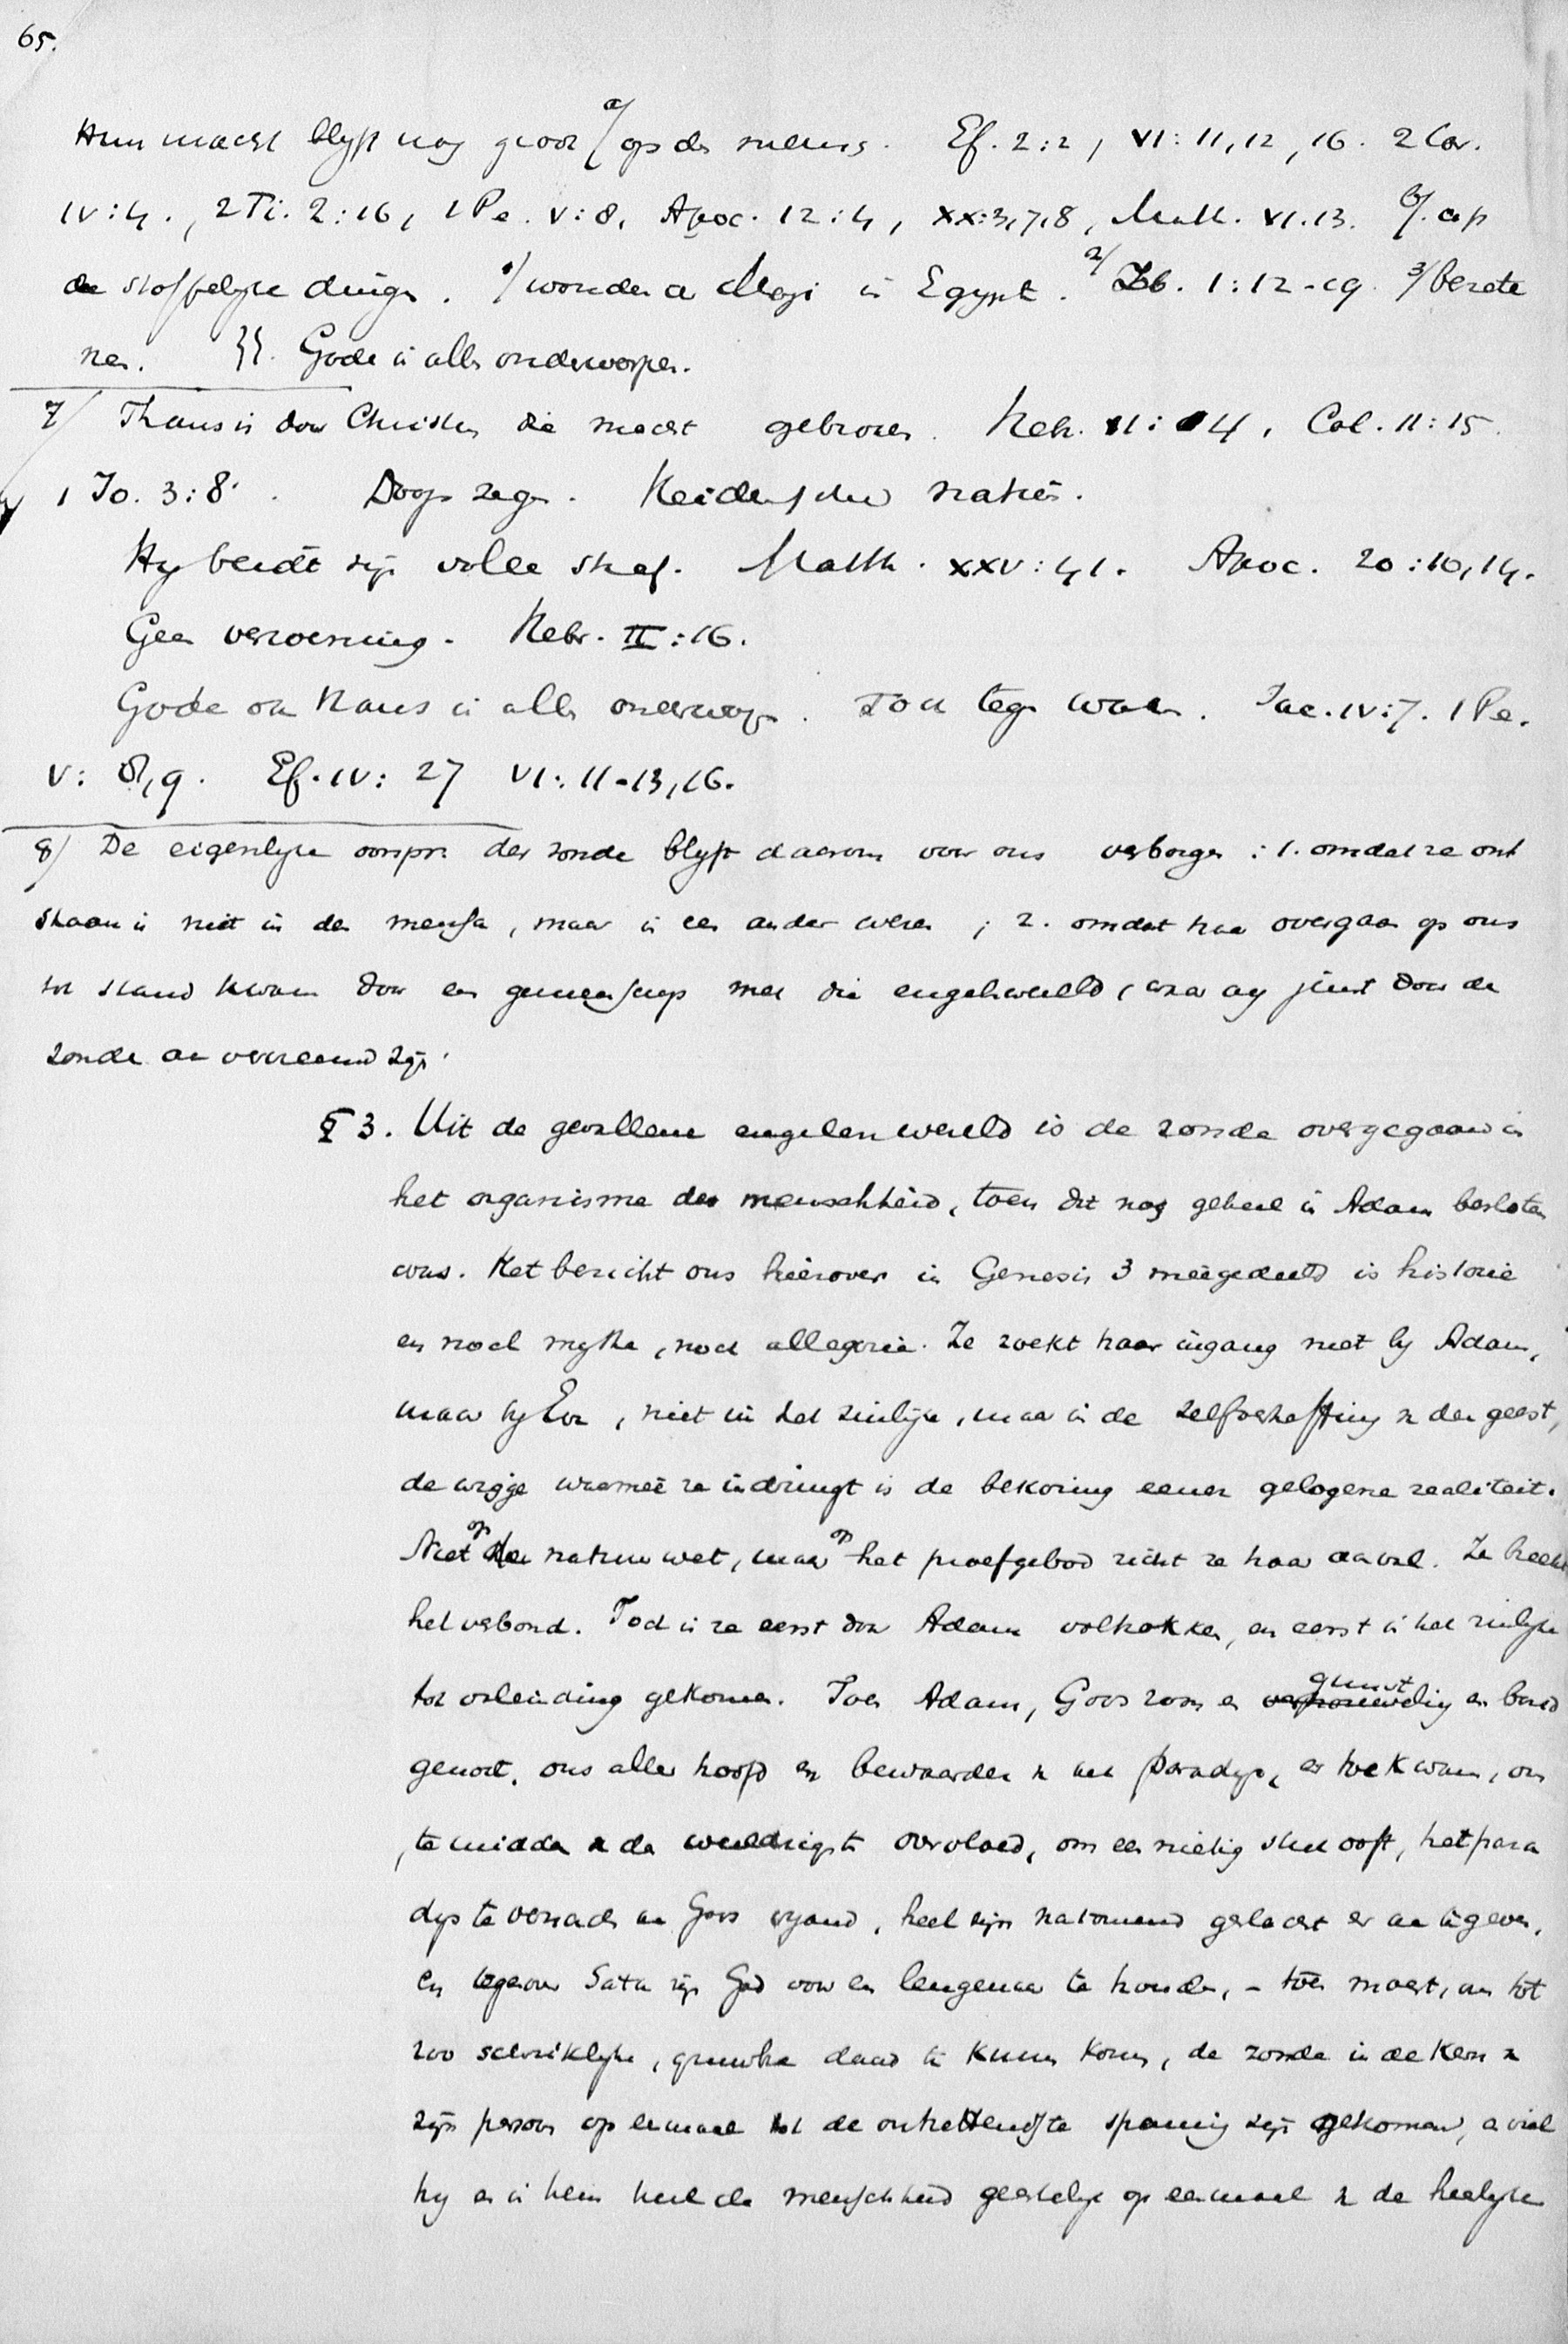 65.
Hun macht blyft nog groot a/ op de mens. Ef. 2:2, VI: 11, 12, 16. 2 Cor.
IV:4., 2 Ti. 2:16, 1 Pe. V:8, Apoc. 12:4, XX:3,7,8, Matt. VI.13. b/. op
de stoffelyke dinge. 1/ wonder d Magi in Egypt. 2/ Jb. 1:12-19. 3/ bezete
nen. }}. Gode is alles onderworpen.
7/ Thans is door Christus die macht gebroken. Hebr. II:14, Col. II:15.
1 Jo. 3:8. Doop zegen. Heidensche natiën.
Hy beidt zijn volle straf. Matth. XXV:41. Apoc. 20:10,14.
Geen verzoening. Hebr. II:16.
Gode ook thans is alles onderworpen. tegen Jac. IV:7. 1 Pe.
V: 8,9. Ef. IV: 27 VI: 11-13,16.
8/ De eigenlyke oorspr. der zonde blyft daarom voor ons verborgen: 1. omdat ze ont
staan is niet in den mensch, maar in een ander wezen; 2. omdat haar overgaan op ons
tot stand kwam door een gemeenschap met die engelwereld, waar wy juist door de
zonde aan vervreemd zijn.
§ 3. Uit de gevallene engelenwereld is de zonde overgegaan in
het organisme der menschheid, toen dit nog geheel in Adam besloten
was. Het bericht ons hierover in Genesis 3 meêgedeeld is historie
en noch mythe, noch allegorie. Ze zoekt haar ingang niet by Adam,
maar by Eva, niet in het zinlyke, maar in de zelfverheffing v den geest,
de wigge waarmeê ze indringt is de bekoring eener gelogene realiteit.
Niet op de natuurwet, maar op het proefgebod richt ze haar aanval. Ze breekt
het verbond. Toch is ze eerst door Adam voltrokken, en eerst in het zinlyke
tot verleiding gekomen. Toen Adam, Gods zoon en gunst eling en bond
genoot, ons aller hoofd en bewaarder v het paradys, er toe kwam, om
te midden v de weeldrigste overvloed, om een nietig stuk ooft, het para
dys te verraden aan Gods vyand, heel zijn nakomend geslacht er aan te geven,
en tegenover Satan zijn God voor een leugenaar te houden, - toen moest, om tot
zoo schriklyke, gruwbre daad te kunnen komen, de zonde in de kern v
zijn persoon op eenmaal tot de ontzettendste spanning zijn gekomen, en viel
hy en in hem heel de menschheid geestelyk op eenmaal v de heerlyke